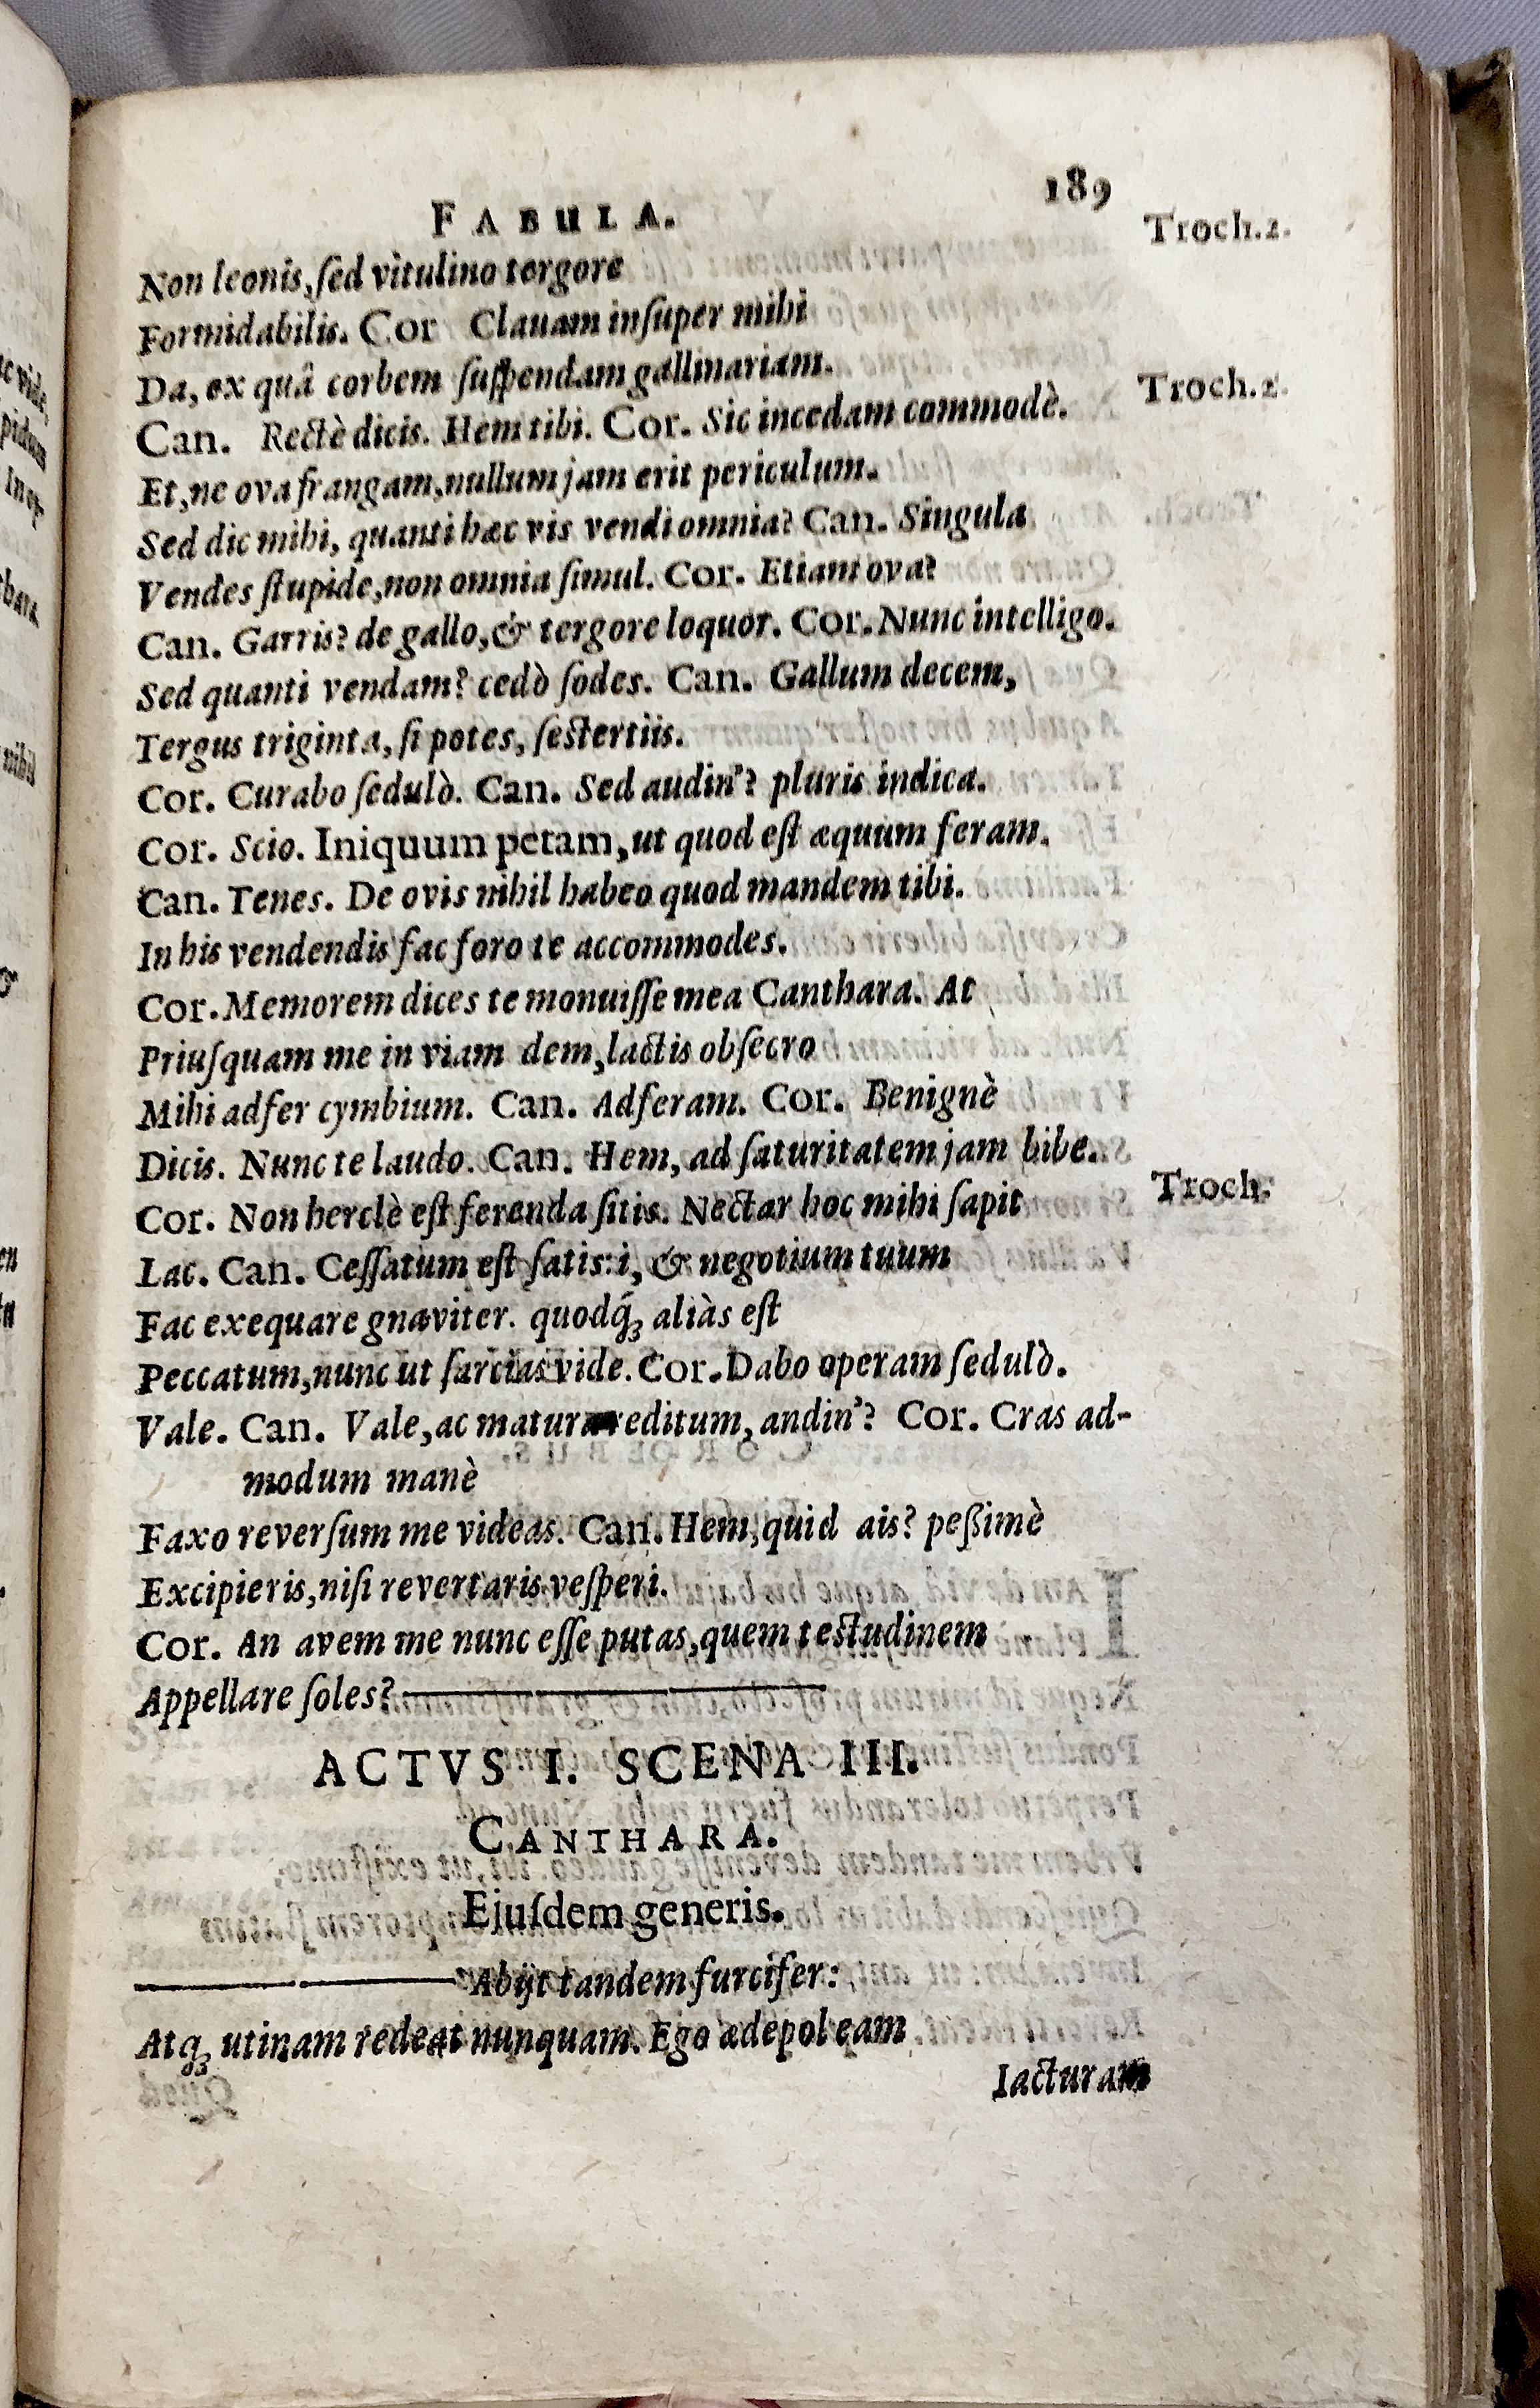 189
FABULA.
Troch.2.
Non leonis, ſed vitulino tergore
Formidabilis. Cor Clauam inſuper mihi
Da, ex quâ corbem ſuſpendam gallinariam.
Troch.2.
Can. Rectè dicis. Hem tibi. Cor. Sic incedam commodè.
Et, ne ova frangam, nullum jam erit periculum.
Sed dic mihi, quanti hæc vis vendi omnia? Can. Singula
Vendes ſtupide, non omnia ſimul. Cor. Etiam ova?
Can. Garris? de gallo, & tergore loquor. Cor. Nunc intelligo.
Sed quanti vendam? cedò ſodes. Can. Gallum decem,
Tergus triginta, ſi potes, ſeſtertiis.
Cor. Curabo ſedulò. Can. Sed audin'? pluris indica.
Cor. Scio. Iniquum petam, ut quod eſt æquum feram.
Can. Tenes. De ovis nihil habeo quod mandem tibi.
In his vendendis fac foro te accommodes.
Cor. Memorem dices te monuiſſe mea Canthara. At
Priuſquam me in viam dem, lactis obſecro
Mihi adfer cymbium. Can. Adferam. Cor. Benignè
Dicis. Nunc te laudo. Can. Hem, ad ſaturitatem jam bibe.
Troch.
Cor. Non herclè eſt ferenda ſitis. Nectar hoc mihi ſapit
Lac. Can. Ceſſatum eſt ſatis: i, & negotium tuum
Fac exequare gnaviter. quodq́ꝫ aliàs eſt
Peccatum, nunc ut ſarcias vide. Cor. Dabo operam ſedulò.
Vale. Can. Vale, ac matura reditum, andin'? Cor. Cras ad-
modum manè
Faxo reverſum me videas. Can. Hem, quid ais? peßimè
Excipieris, niſi revertaris veſperi.
Cor. An avem me nunc eſſe putas, quem teſtudinem
Appellare ſoles?
ACTVS I. SCENA III.
CANTHARA.
Ejuſdem generis.
Abijt tandem furcifer:
Atqꝫ utinam redeat nunquam. Ego ædepol eam
Iacturam